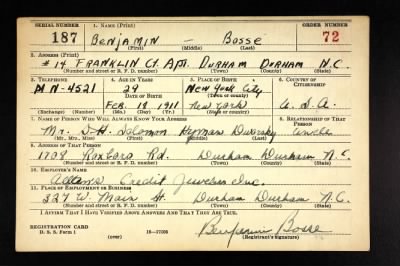 SERIAL NUMBER 1. NAME (Print) ORDER NUMBER
187 BENJAMIN — BOSSE 72
(First) (Middle) (Last)
2. ADDRESS (Print)
#14 FRANKLIN Ct. Apt. DURHAM DURHAM N.C.
(Number and street or R. F. D. number) (Town) (County) (State)
3. TELEPHONE 4. AGE IN YEARS 5. PLACE OF BIRTH 6. COUNTRY OF CITIZENSHIP
N-4521 29 New York City
(Town or county)
Feb. 19 1911 New York U. S. A.
(Exchange) (Number) (Mo.) (Day) (Yr.) (State or country)
7. NAME OF PERSON WHO WILL ALWAYS KNOW YOUR ADDRESS 8. RELATIONSHIP OF THAT PERSON
Mr. Solomon Hyman Uncle
(Mr., Mrs., Miss) (First) (Middle) (Last)
9. ADDRESS OF THAT PERSON
1708 Roxboro Rd. Durham Durham N.C.
(Number and street or R. F. D. number) (Town) (County) (State)
10. EMPLOYER'S NAME
Credit Jewelers Inc.
11. PLACE OF EMPLOYMENT OR BUSINESS
327 W. Main St. Durham Durham N.C.
(Number and street or R. F. D. number) (Town) (County) (State)
I AFFIRM THAT I HAVE VERIFIED ABOVE ANSWERS AND THAT THEY ARE TRUE.
REGISTRATION CARD
D. S. S. Form 1 Benjamin Bosse
(Registrant's signature)